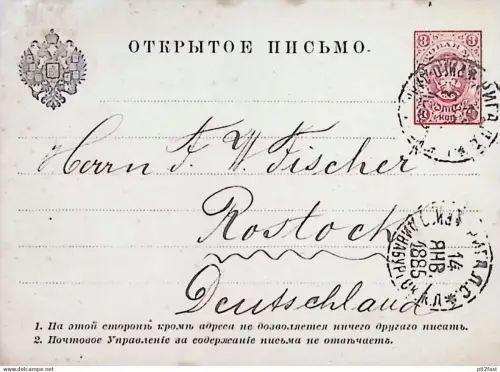 ОТКРЫТОЕ ПИСЬМО.
Herrn F. W. Fischer
Rostock
Deutschland
14
ЯНВ.
1885
1. На этой сторонѣ кромѣ адреса не дозволяется ничего другаго писать.
2. Почтовое Управленіе за содержаніе письма не отвѣчаетъ.